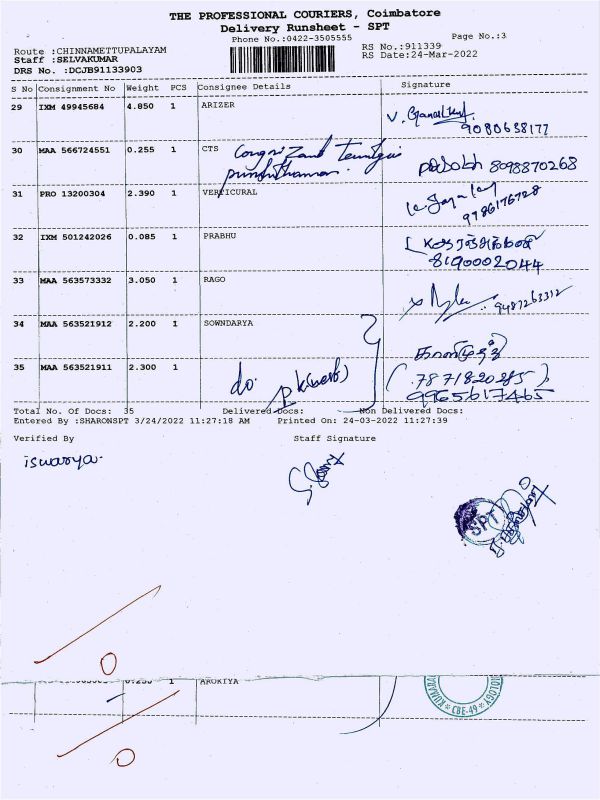 THE PROFESSIONAL COURIERS, Coimbatore
Delivery Runsheet - SPT
Phone No.:0422-3505555
Page No.:3
Route :CHINNAMETTUPALAYAM
RS No.:911339
Staff :SELVAKUMAR
RS Date:24-Mar-2022
DRS No. :DCJB91133903
S No Consignment No Weight PCS Consignee Details Signature
29 IXM 49945684 4.850 1 ARIZER
9080638177
30 MAA 566724551 0.255 1 CTS
8098870268
31 PRO 13200304 2.390 1 VERTICURAL
9786176728
32 IXM 501242026 0.085 1 PRABHU
8190002044
33 MAA 563573332 3.050 1 RAGO
9487263312
34 MAA 563521912 2.200 1 SOWNDARYA
35 MAA 563521911 2.300 1
do.
(7871820285)
9965617465
Total No. Of Docs: 35 Delivered Docs: Non Delivered Docs:
Entered By :SHARONSPT 3/24/2022 11:27:18 AM Printed On: 24-03-2022 11:27:39
Verified By Staff Signature
iswarya.
SPT
0
1 AROKIYA
CBE-49
0